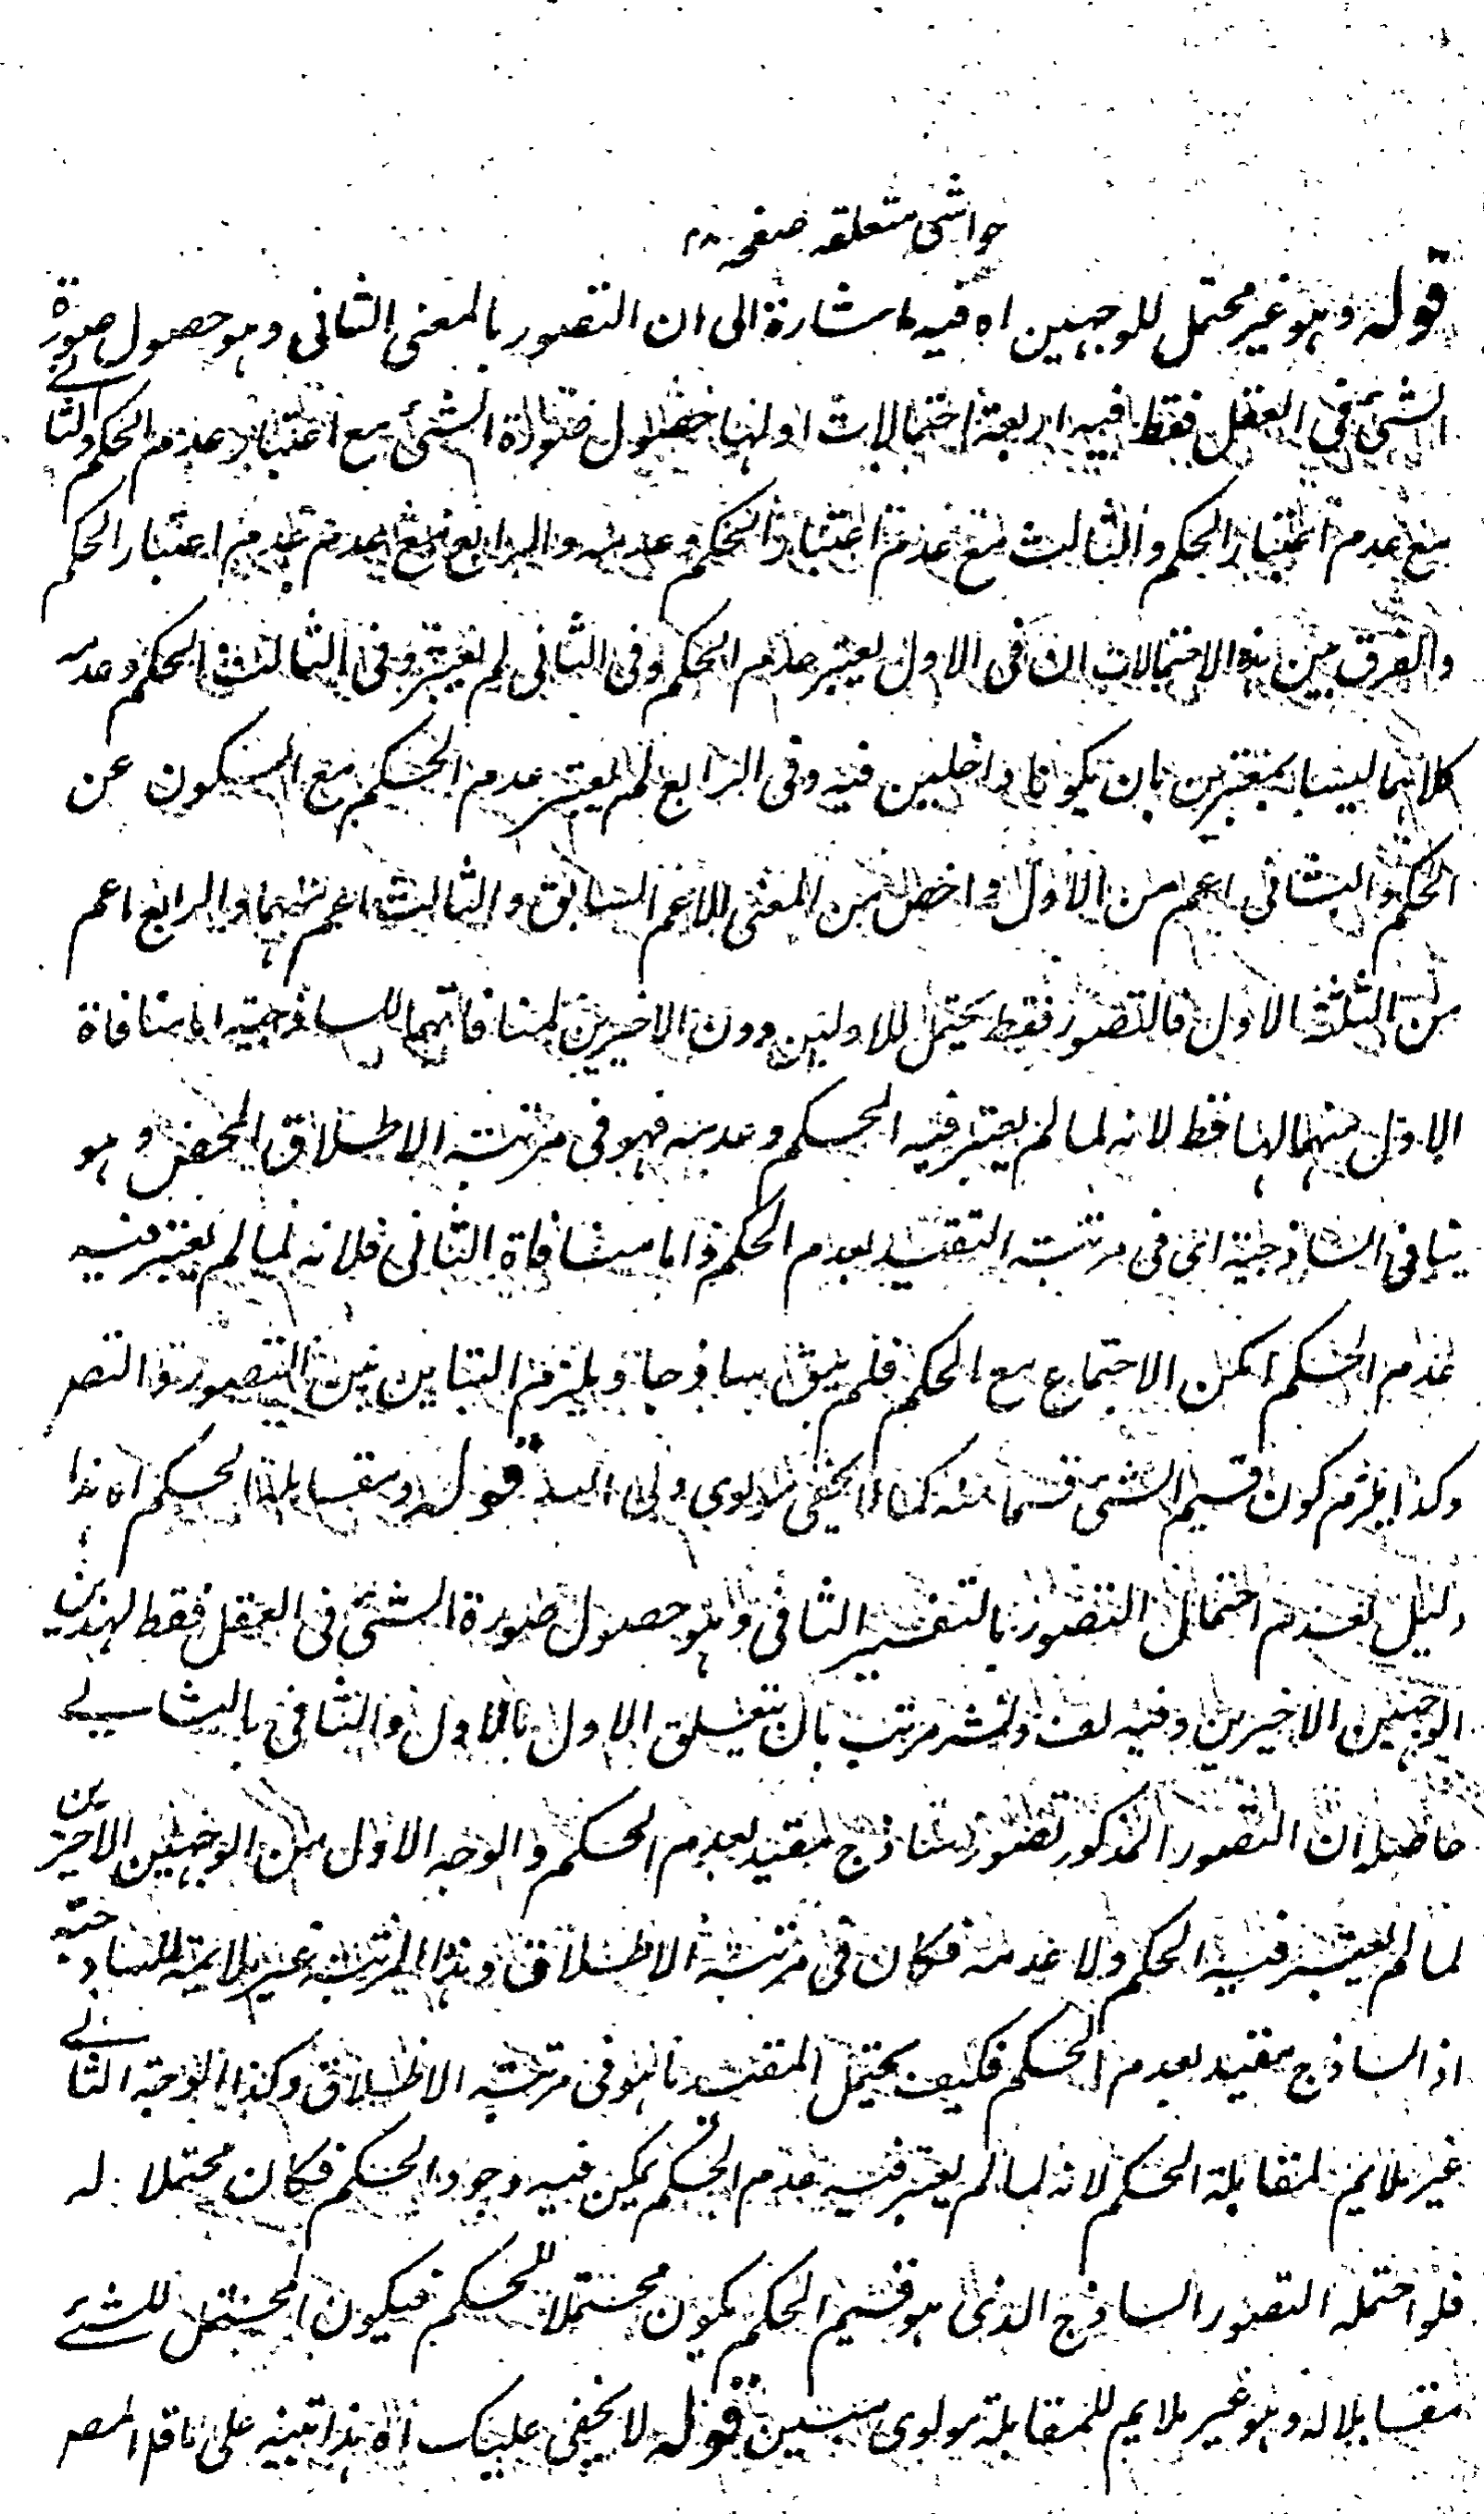 حواشی متعلقه صفحه ٢٨
قوله وهو غير محتمل للوجهين اه فيه اشارة الى ان التصور بالمعنى الثانى وهو حصول صورة
الشئ فى العقل فقط فيه اربعة احتمالات اولها حصول صورة الشئ مع اعتبار عدم الحكم والثانے
مع عدم اعتبار الحكم والثالث مع عدم اعتبار الحكم وعدمه والرابع مع عدم اعتبار الحكم
والفرق بين هذه الاحتمالات ان فى الاول يعتبر عدم الحكم وفى الثانى لم يعتبر وفى الثالث الحكم وعدمه
كلاهما ليسا بمعتبرين بان يكونا داخلين فيه وفى الرابع لم يعتبر عدم الحكم مع السكون عن
الحكم والثانى اعم من الاول واخص من المعنى للاعم السابق والثالث اعم منهما والرابع اعم
من الثلث الاول فالتصور فقط يحتمل للاولين دون الاخيرين لمنافاتهما للساذجية اما منافاة
الاول منهما لها فظ لانه لما لم يعتبر فيه الحكم وعدمه فهو فى مرتبة الاطلاق المحض وهو
ينافى الساذجية اى فى مرتبة التقييد بعدم الحكم واما منافاة الثانى فلانه لما لم يعتبر فيه
عدم الحكم امكن الاجتماع مع الحكم فلم يبق ساذجا ويلزم التباين بين التصور والتصر
وكذا يلزم كون قسيم الشئ قسما منه كما لا يخفى مولوى ولى الله قوله ومقابلة الحكم اه هذا
دليل لعدم احتمال التصور بالتفسير الثانى وهو حصول صورة الشئ فى العقل فقط لهذين
الوجهين الاخيرين وفيه لف ونشر مرتب بان يتعلق الاول بالاول والثانى بالثانے
حاصله ان التصور المذكور تصور ساذج مقيد بعدم الحكم والوجه الاول من الوجهين الاخيرين
لما لم يعتبر فيه الحكم ولا عدمه فكان فى مرتبة الاطلاق وهذا المرتبة غير ملايمة للساذجته
اذ الساذج مقيد بعدم الحكم فكيف يحتمل المقيد ما هو فى مرتبة الاطلاق وكذا الوجه الثانے
غير ملايم لمقابلة الحكم لانه لما لم يعتبر فيه عدم الحكم يمكن فيه وجود الحكم فكان محتملا له
فلو احتمله التصور الساذج الذى هو قسيم الحكم يكون محتملا للحكم فيكون المحتمل للشئے
مقابلا له وهو غير ملايم للمقابلة مولوى مبين قوله لا يخفى عليك اه هذا تنبيه على ما قال المصر